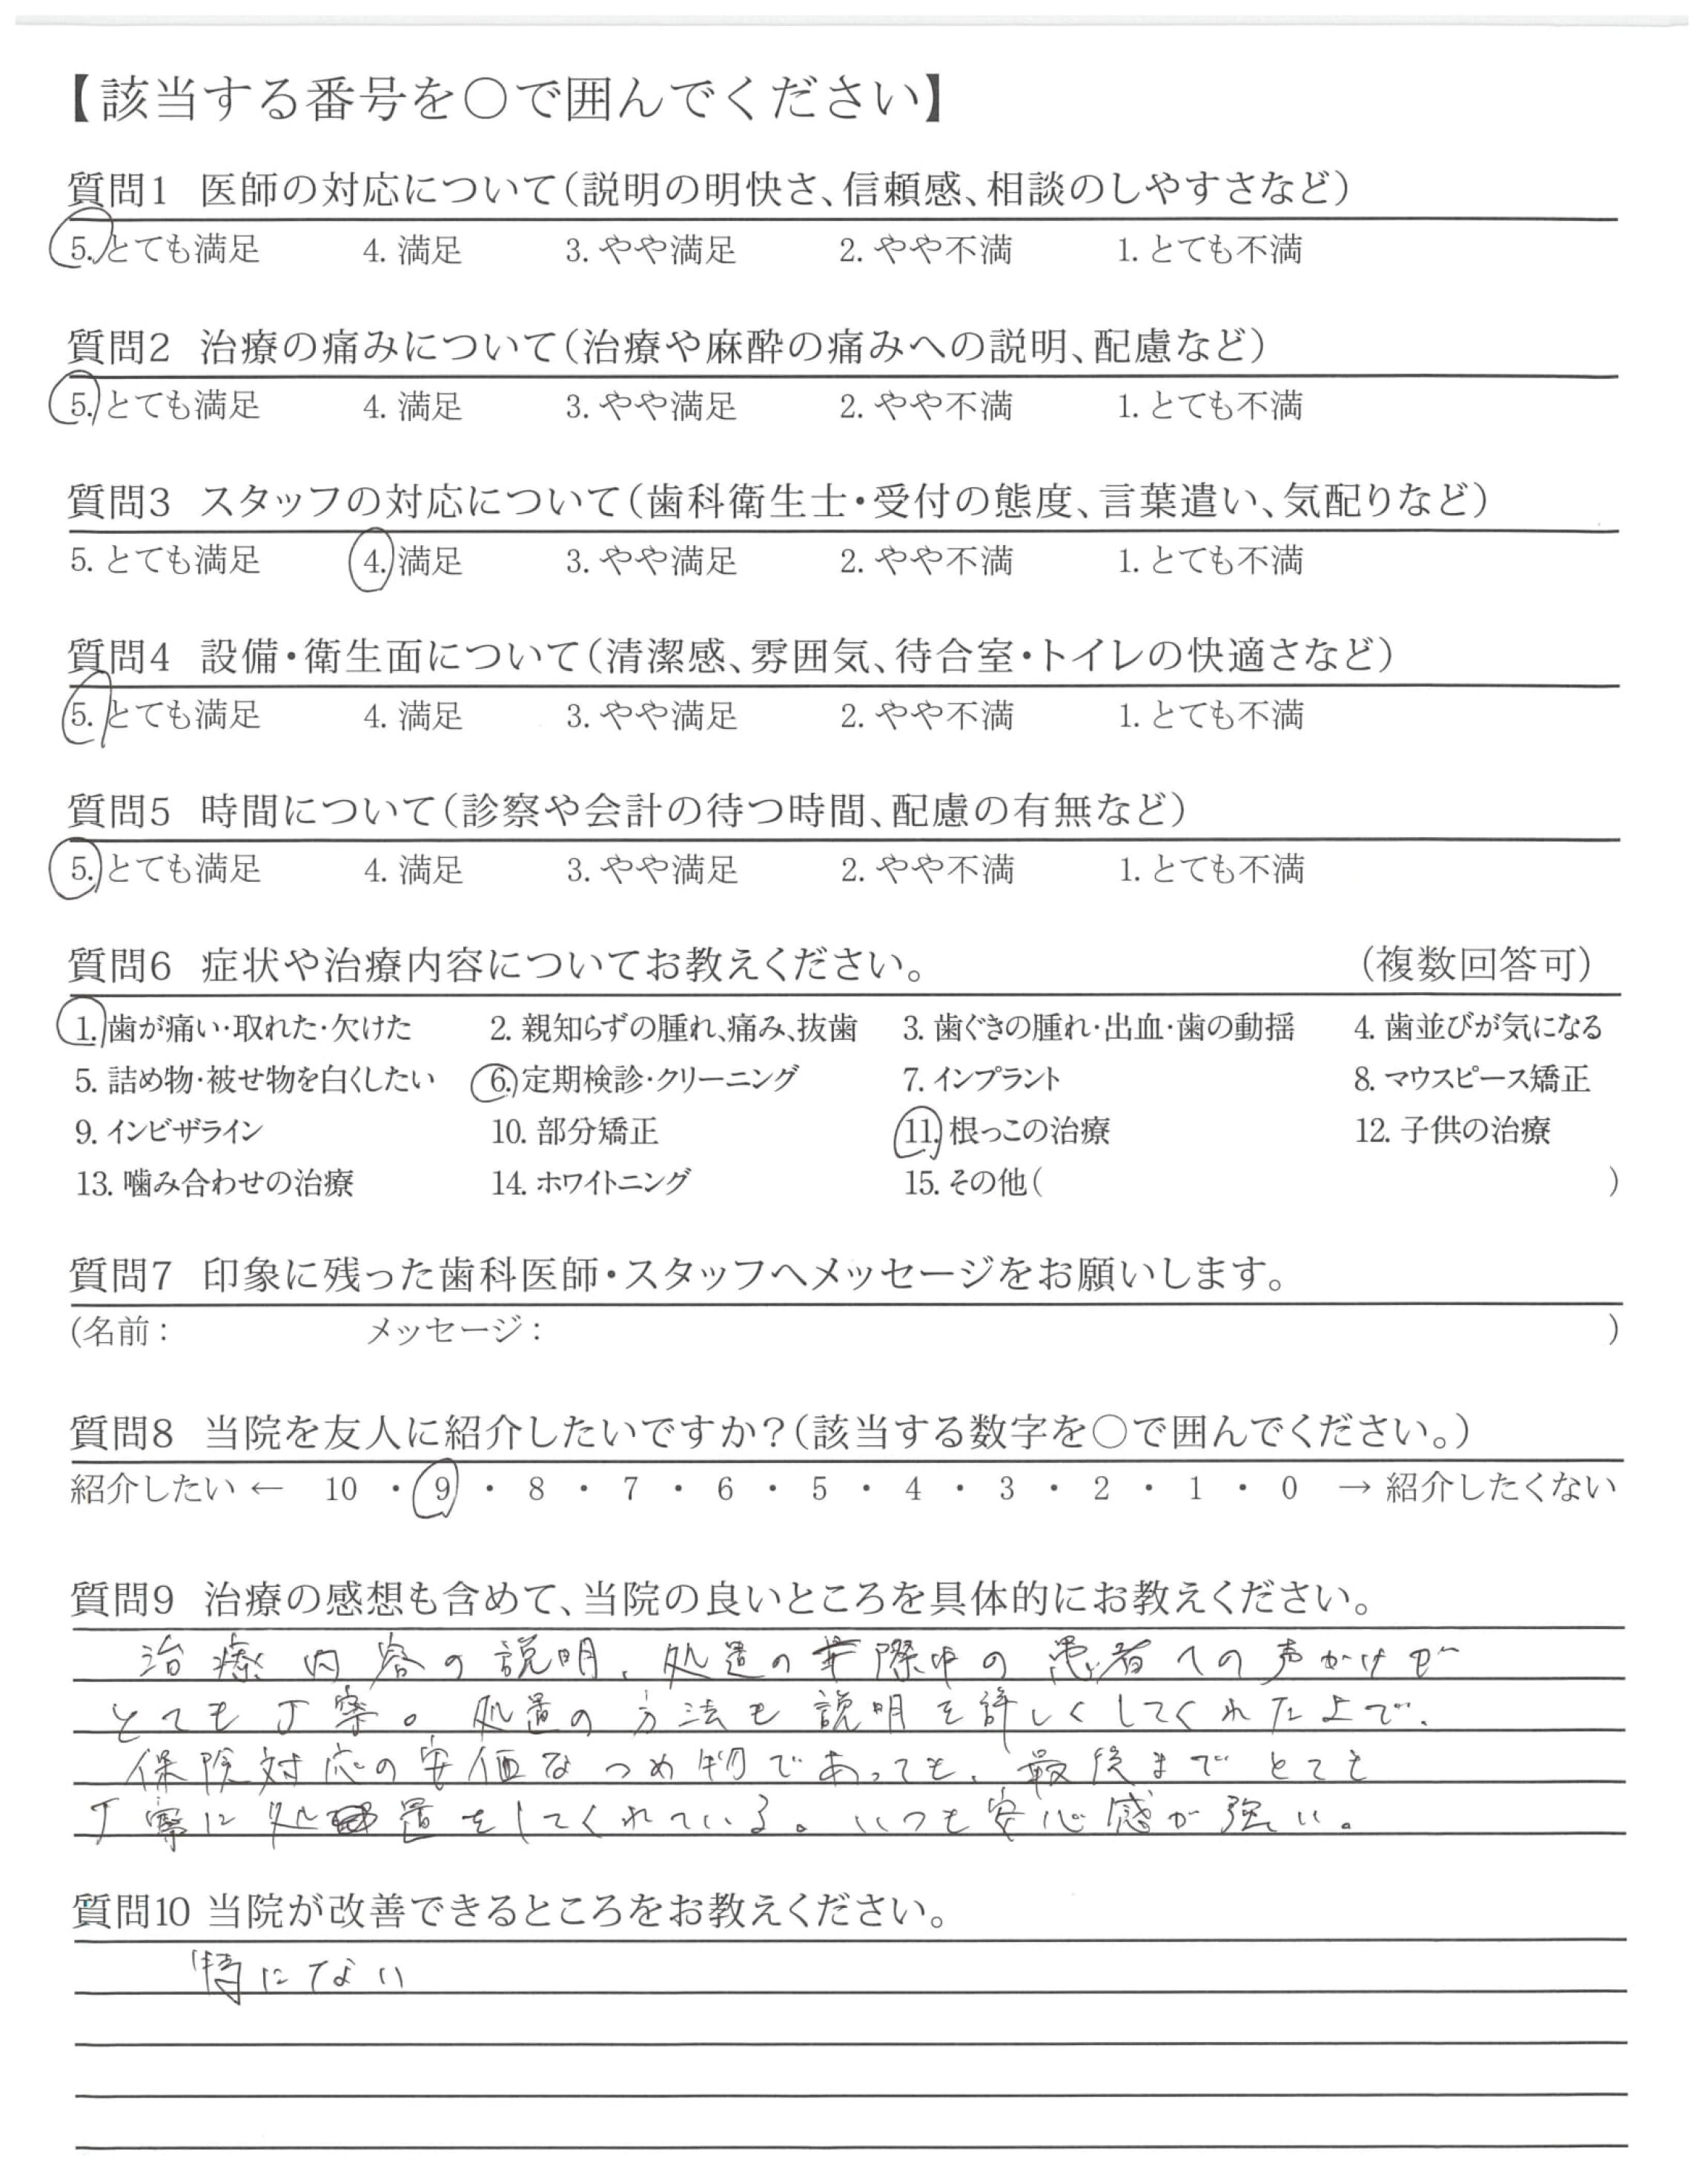 【該当する番号を○で囲んでください】
質問1 医師の対応について(説明の明快さ、信頼感、相談のしやすさなど)
5. とても満足 4. 満足 3. やや満足 2. やや不満 1. とても不満
質問2 治療の痛みについて(治療や麻酔の痛みへの説明、配慮など)
5. とても満足 4. 満足 3. やや満足 2. やや不満 1. とても不満
質問3 スタッフの対応について(歯科衛生士・受付の態度、言葉遣い、気配りなど)
5. とても満足 4. 満足 3. やや満足 2. やや不満 1. とても不満
質問4 設備・衛生面について(清潔感、雰囲気、待合室・トイレの快適さなど)
5. とても満足 4. 満足 3. やや満足 2. やや不満 1. とても不満
質問5 時間について(診察や会計の待つ時間、配慮の有無など)
5. とても満足 4. 満足 3. やや満足 2. やや不満 1. とても不満
質問6 症状や治療内容についてお教えください。 (複数回答可)
1. 歯が痛い・取れた・欠けた 2. 親知らずの腫れ、痛み、抜歯 3. 歯ぐきの腫れ・出血・歯の動揺 4. 歯並びが気になる
5. 詰め物・被せ物を白くしたい 6. 定期検診・クリーニング 7. インプラント 8. マウスピース矯正
9. インビザライン 10. 部分矯正 11. 根っこの治療 12. 子供の治療
13. 噛み合わせの治療 14. ホワイトニング 15. その他( )
質問7 印象に残った歯科医師・スタッフへメッセージをお願いします。
(名前: メッセージ: )
質問8 当院を友人に紹介したいですか?(該当する数字を○で囲んでください。)
紹介したい ← 10 ・ 9 ・ 8 ・ 7 ・ 6 ・ 5 ・ 4 ・ 3 ・ 2 ・ 1 ・ 0 → 紹介したくない
質問9 治療の感想も含めて、当院の良いところを具体的にお教えください。
治療内容の説明、処置の際中の患者への声かけが
とても丁寧。処置の方法も説明を詳しくしてくれた上で、
保険対応の安価なつめ物であっても、最後までとても
丁寧に処置をしてくれている。いつも安心感が強い。
質問10 当院が改善できるところをお教えください。
特にない